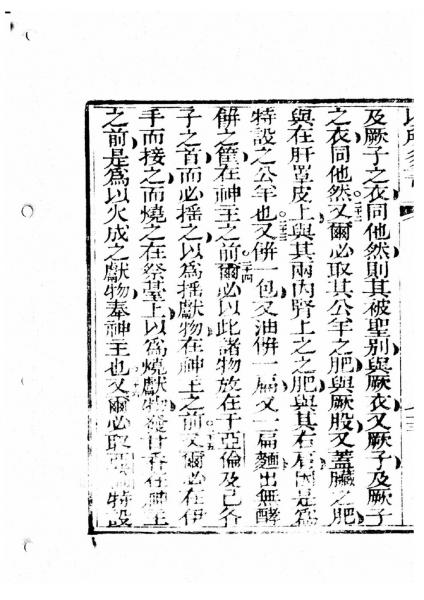 及厥子之衣同他然則其被聖别與厥衣又厥子及厥子
之衣同他然又爾必取其公羊之肥與厥股又蓋臟之肥
與在肝罩皮上與其兩內腎上之之肥與其右肩因是為
特設之公羊也又餅一包又油餅一扁又一扁麵出無酵
餅之筐在神主之前爾必以此諸物放在于亞倫及己各
子之首而必搖之以為搖獻物在神主之前又爾必在伊
手而接之而燒之在祭臺上以為燒獻物發甘香在神主
之前是為以火成之獻物奉神主也又爾必取特設